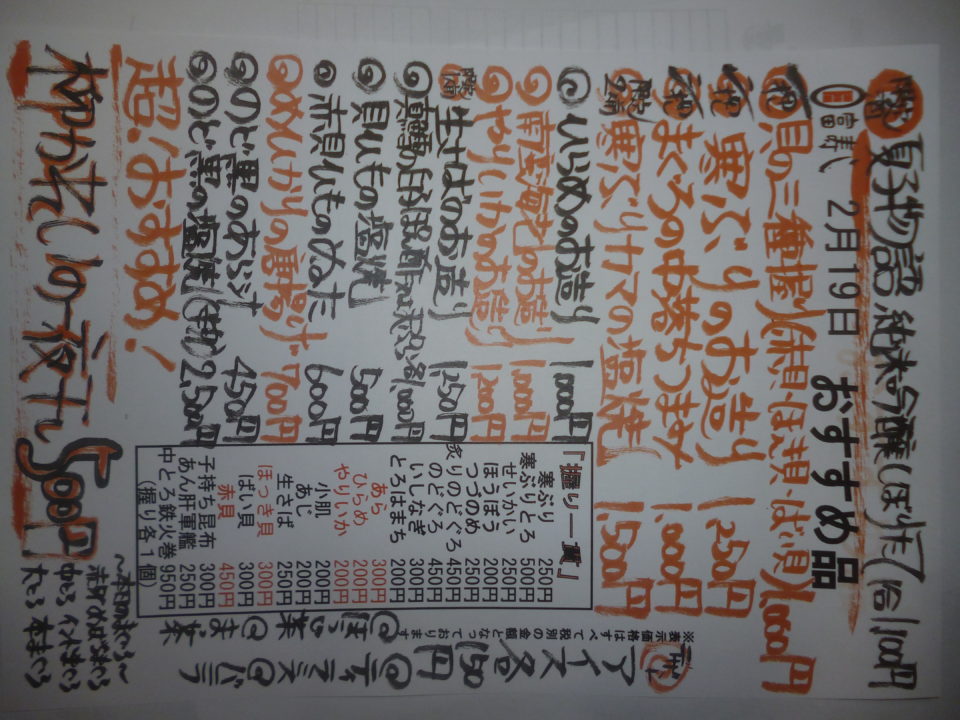 夏子物語 純米吟醸しぼりたて 一合1,100円
富寿し 2月19日 おすすめ品
貝の三種握り(赤貝・ほっき貝・ばい貝) 1,000円
寒ぶりのお造り 1,250円
まぐろの中落ちつまみ 1,000円
寒ぶりカマの塩焼 1,500円
ひらめのお造り 1,000円
南蛮海老のお造り 1,000円
やりいかのお造り 1,200円
生さばのお造り 1,250円
真鱈の白子 1,000円
貝ひもの塩焼 500円
赤貝ひものぬた 600円
めひかりの唐揚げ 700円
のど黒のあぶり 450円
のど黒の塩焼 2,500円
超!おすすめ!
柳かれいの一夜干し 500円
「握り一貫」
寒ぶり 250円
寒ぶりとろ 500円
せいかい 200円
ほうぼう 250円
つづのめ 250円
炙りのどぐろ 450円
のどぐろ 450円
いしなぎ 300円
とろはまち 200円
あら 300円
ひらめ 200円
やりいか 200円
小肌 200円
あじ 200円
生さば 250円
ほっき貝 300円
ばい貝 300円
赤貝 450円
子持ち昆布 300円
あん肝軍艦 250円
中とろ鉄火巻 950円
(握り各1個)
※表示価格はすべて税別の金額となっております
アイス各150円
@ティラミス @バニラ
@ほうじ茶 @まっ茶
~本日のまぐろ~
赤身 めばちまぐろ
中とろ インドまぐろ
大とろ 本まぐろ